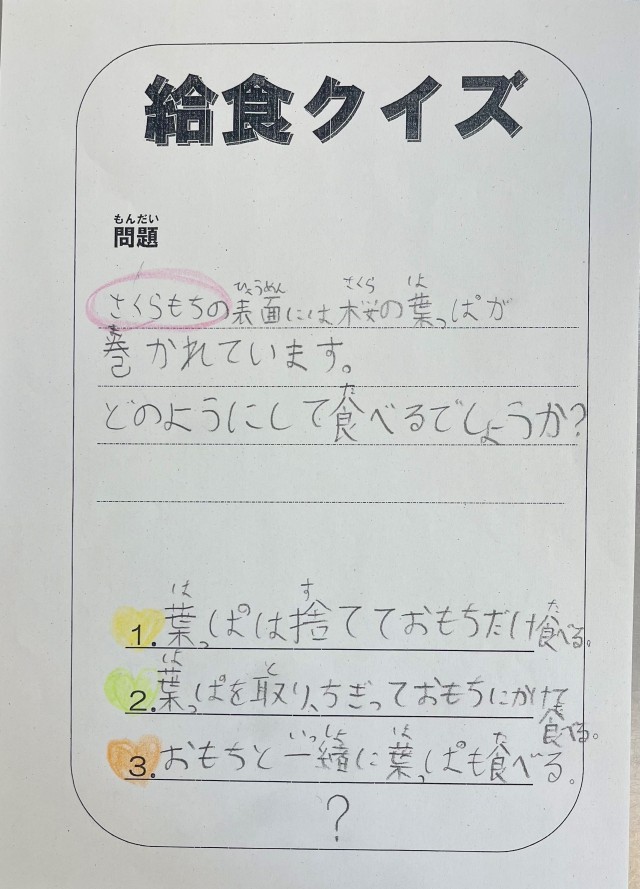 給食クイズ
もんだい
問題
ひょうめん さくら は
さくらもちの表面には桜の葉っぱが
ま
巻かれています。
た
どのようにして食べるでしょうか?
は す た
1. 葉っぱは捨てておもちだけ食べる。
は と
2. 葉っぱを取り、ちぎっておもちにかけて
た
食べる。
いっしょ は た
3. おもちと一緒に葉っぱも食べる。
?